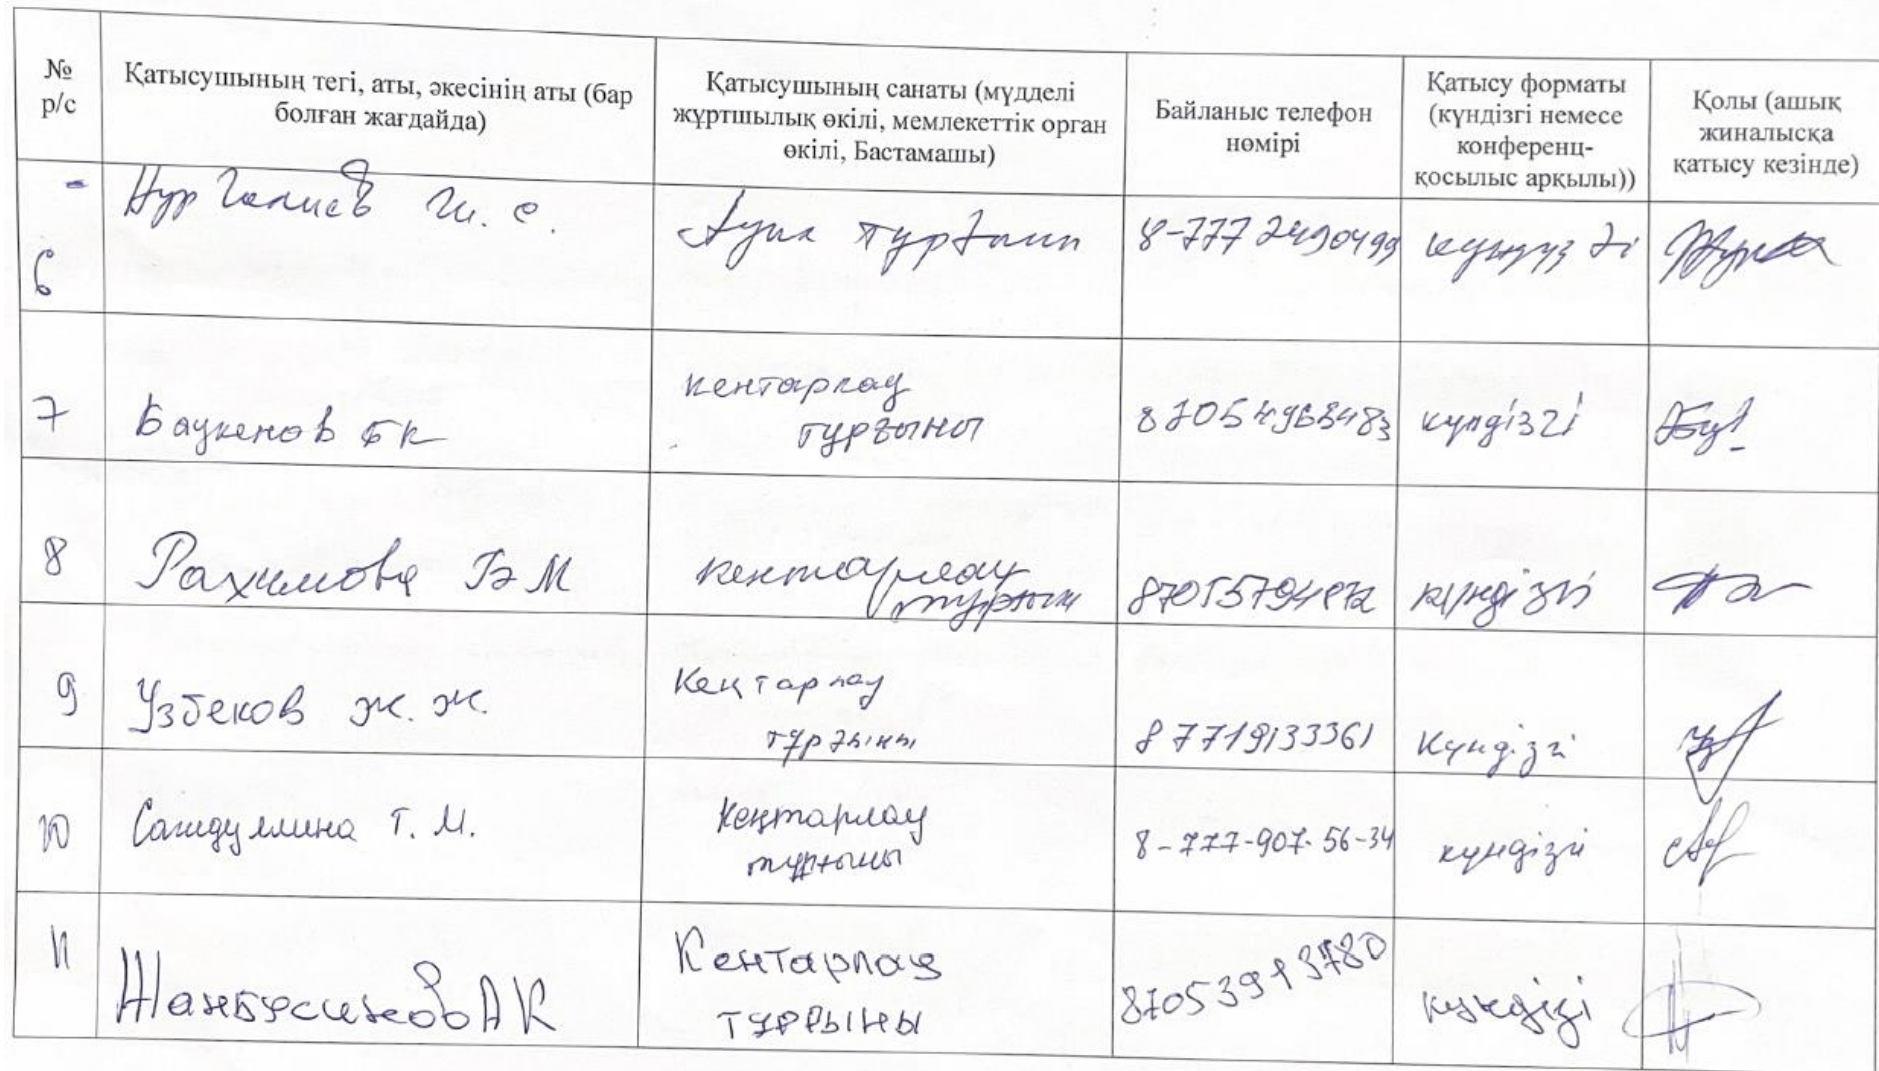 № р/с
Қатысушының тегі, аты, әкесінің аты (бар
болған жағдайда)
Қатысушының санаты (мүдделі
жұртшылық өкілі, мемлекеттік орган
өкілі, Бастамашы)
Байланыс телефон
нөмірі
Қатысу форматы
(күндізгі немесе
конференц-
қосылыс арқылы))
Қолы (ашық
жиналысқа
қатысу кезінде)
6
Нургалиев Ш. С.
Ауыл тұрғын
8-777 2490499
7
Баукенов БК
кентарлау
тұрғыны
күндізгі
8
Рахимова Б М
кентарлау
тұрғын
күндізгі
9
Узбеков Ж. Ж.
Кеңтарлау
тұрғыны
87719133361
Күндізгі
10
Сагидуллина Т. М.
Кеңтарлау
тұрғыны
8-777-907-56-34
күндізгі
11
Жанбусинов А К
Кентарлау
тұрғыны
87053913780
күндізгі